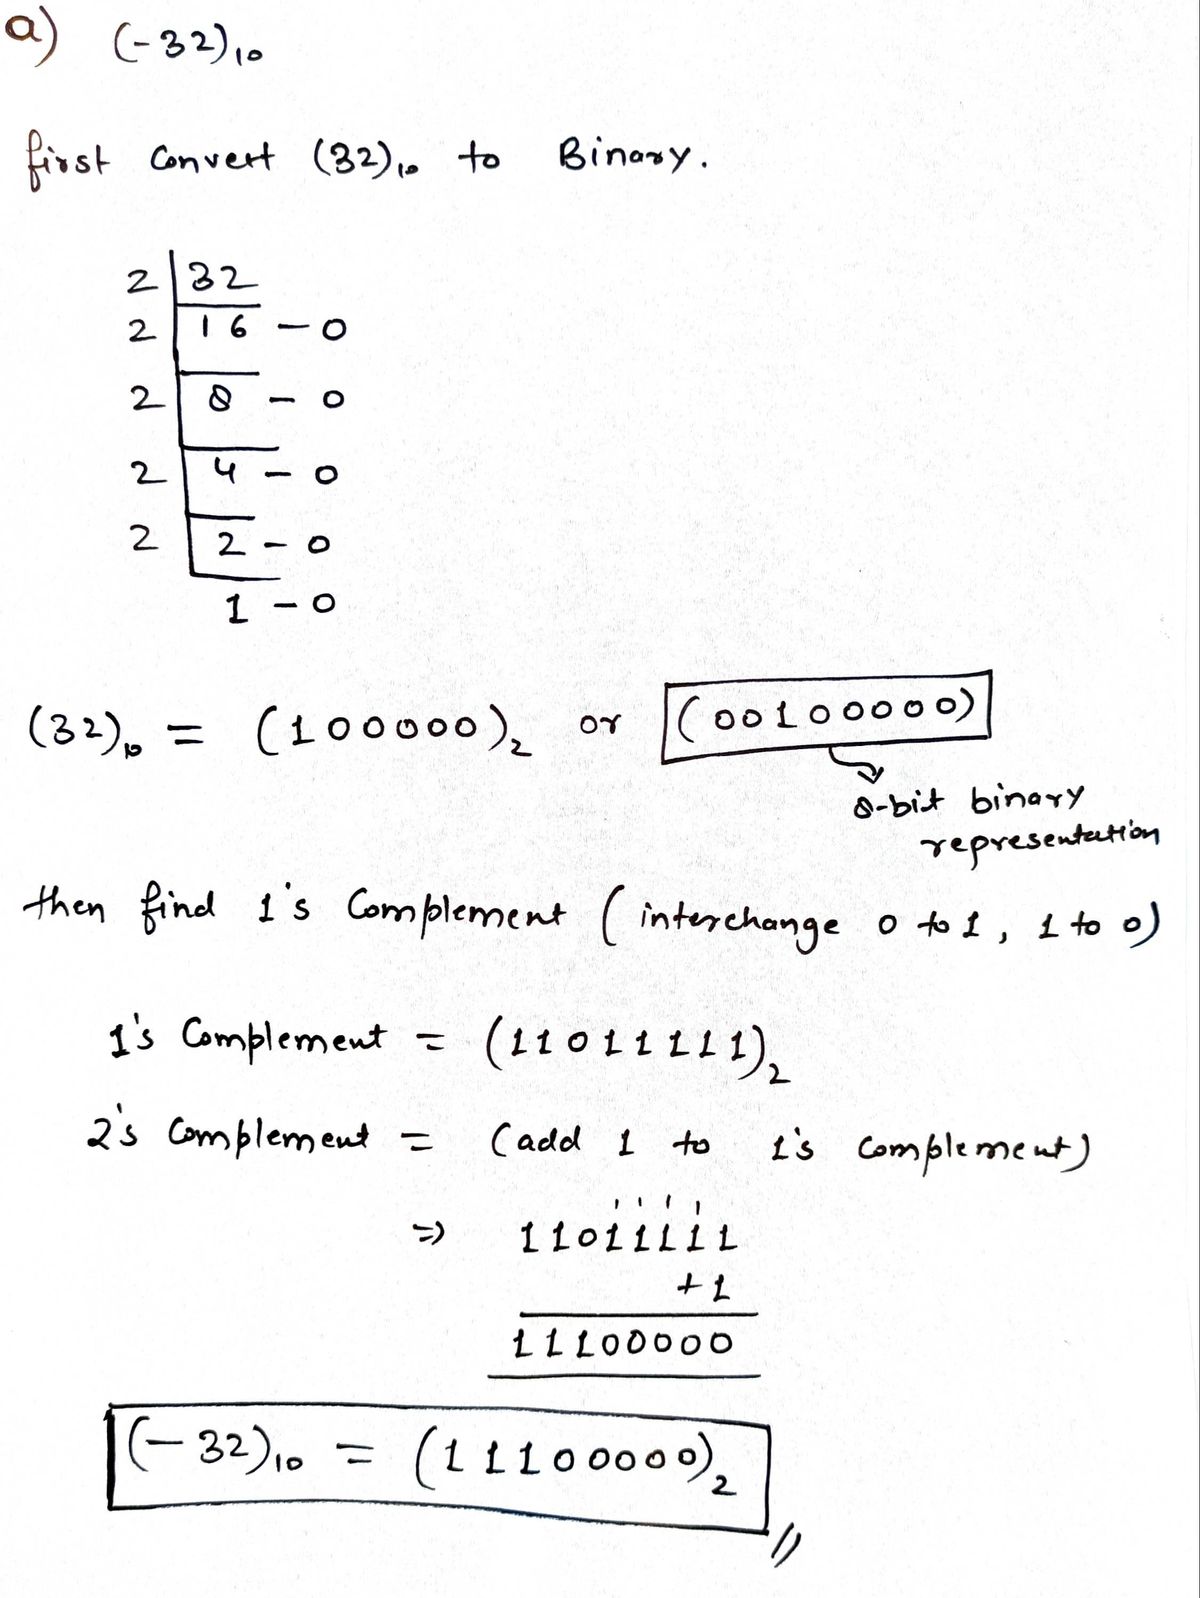 a) (-32)₁₀
first Convert (32)₁₀ to Binary.
2 | 32
2 | 16 - 0
2 | 8 - 0
2 | 4 - 0
2 | 2 - 0
1 - 0
(32)₁₀ = (100000)₂ or (00100000)
8-bit binary
representation
then find 1's Complement ( interchange 0 to 1, 1 to 0)
1's Complement = (11011111)₂
2's Complement = (add 1 to 1's complement)
1 1 1 1
=> 11011111
+1
11100000
(-32)₁₀ = (11100000)₂